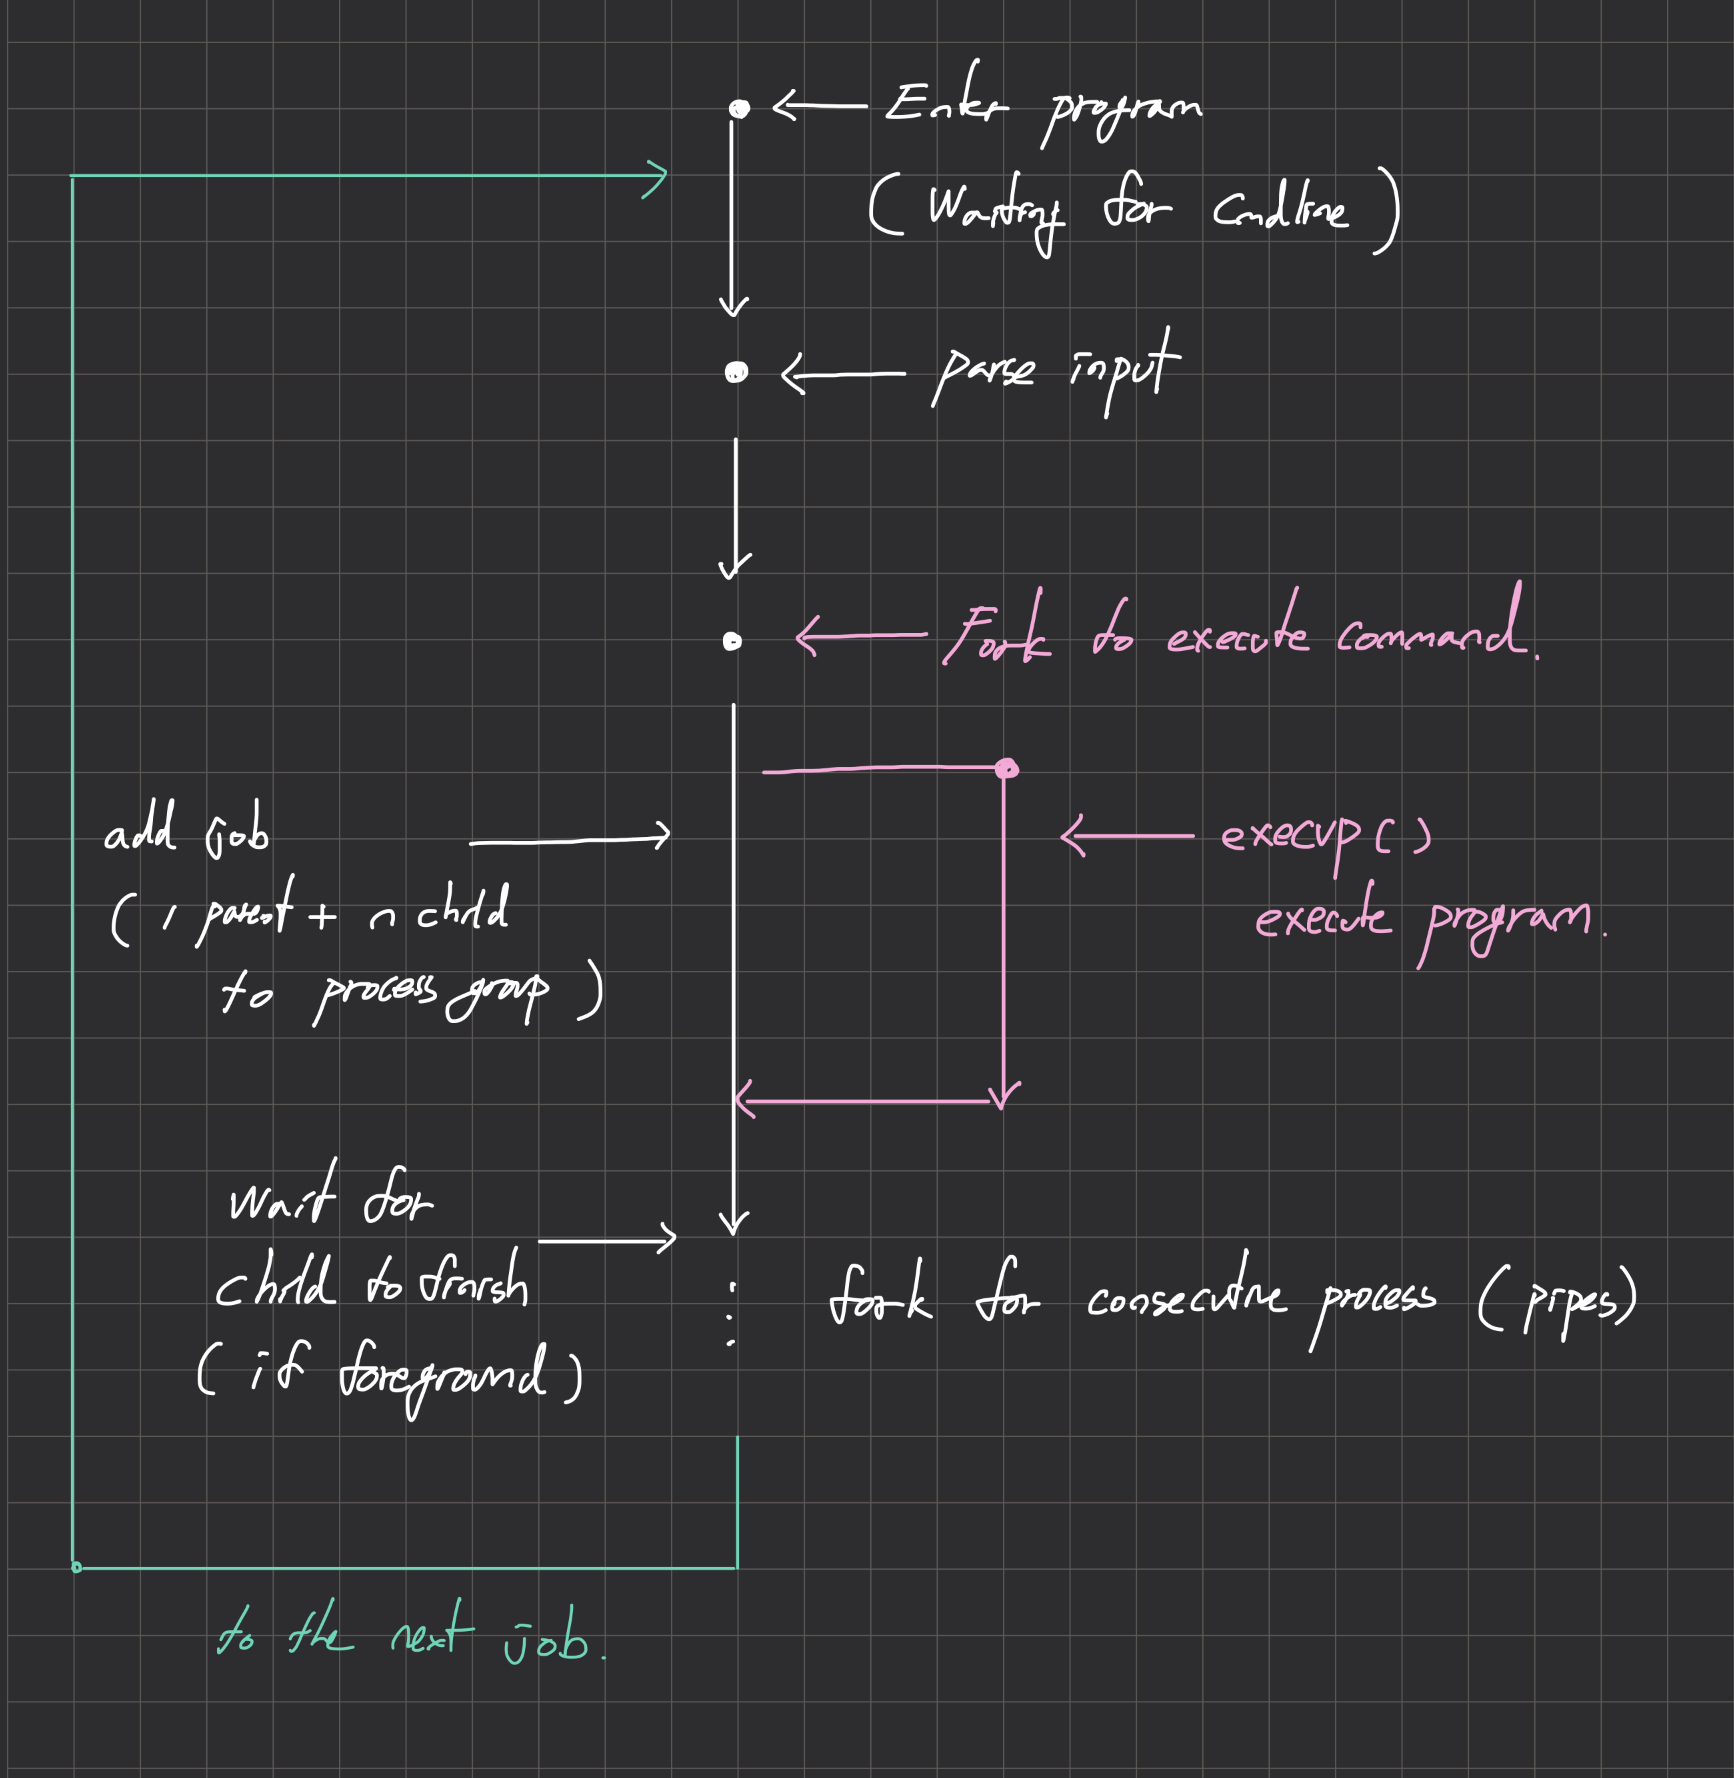 Enter program
(Waiting for cmdline)
parse input
Fork to execute command.
add job
(1 parent + n child
to process group)
execvp()
execute program.
wait for
child to finish
(if foreground)
fork for consecutive process (pipes)
to the next job.